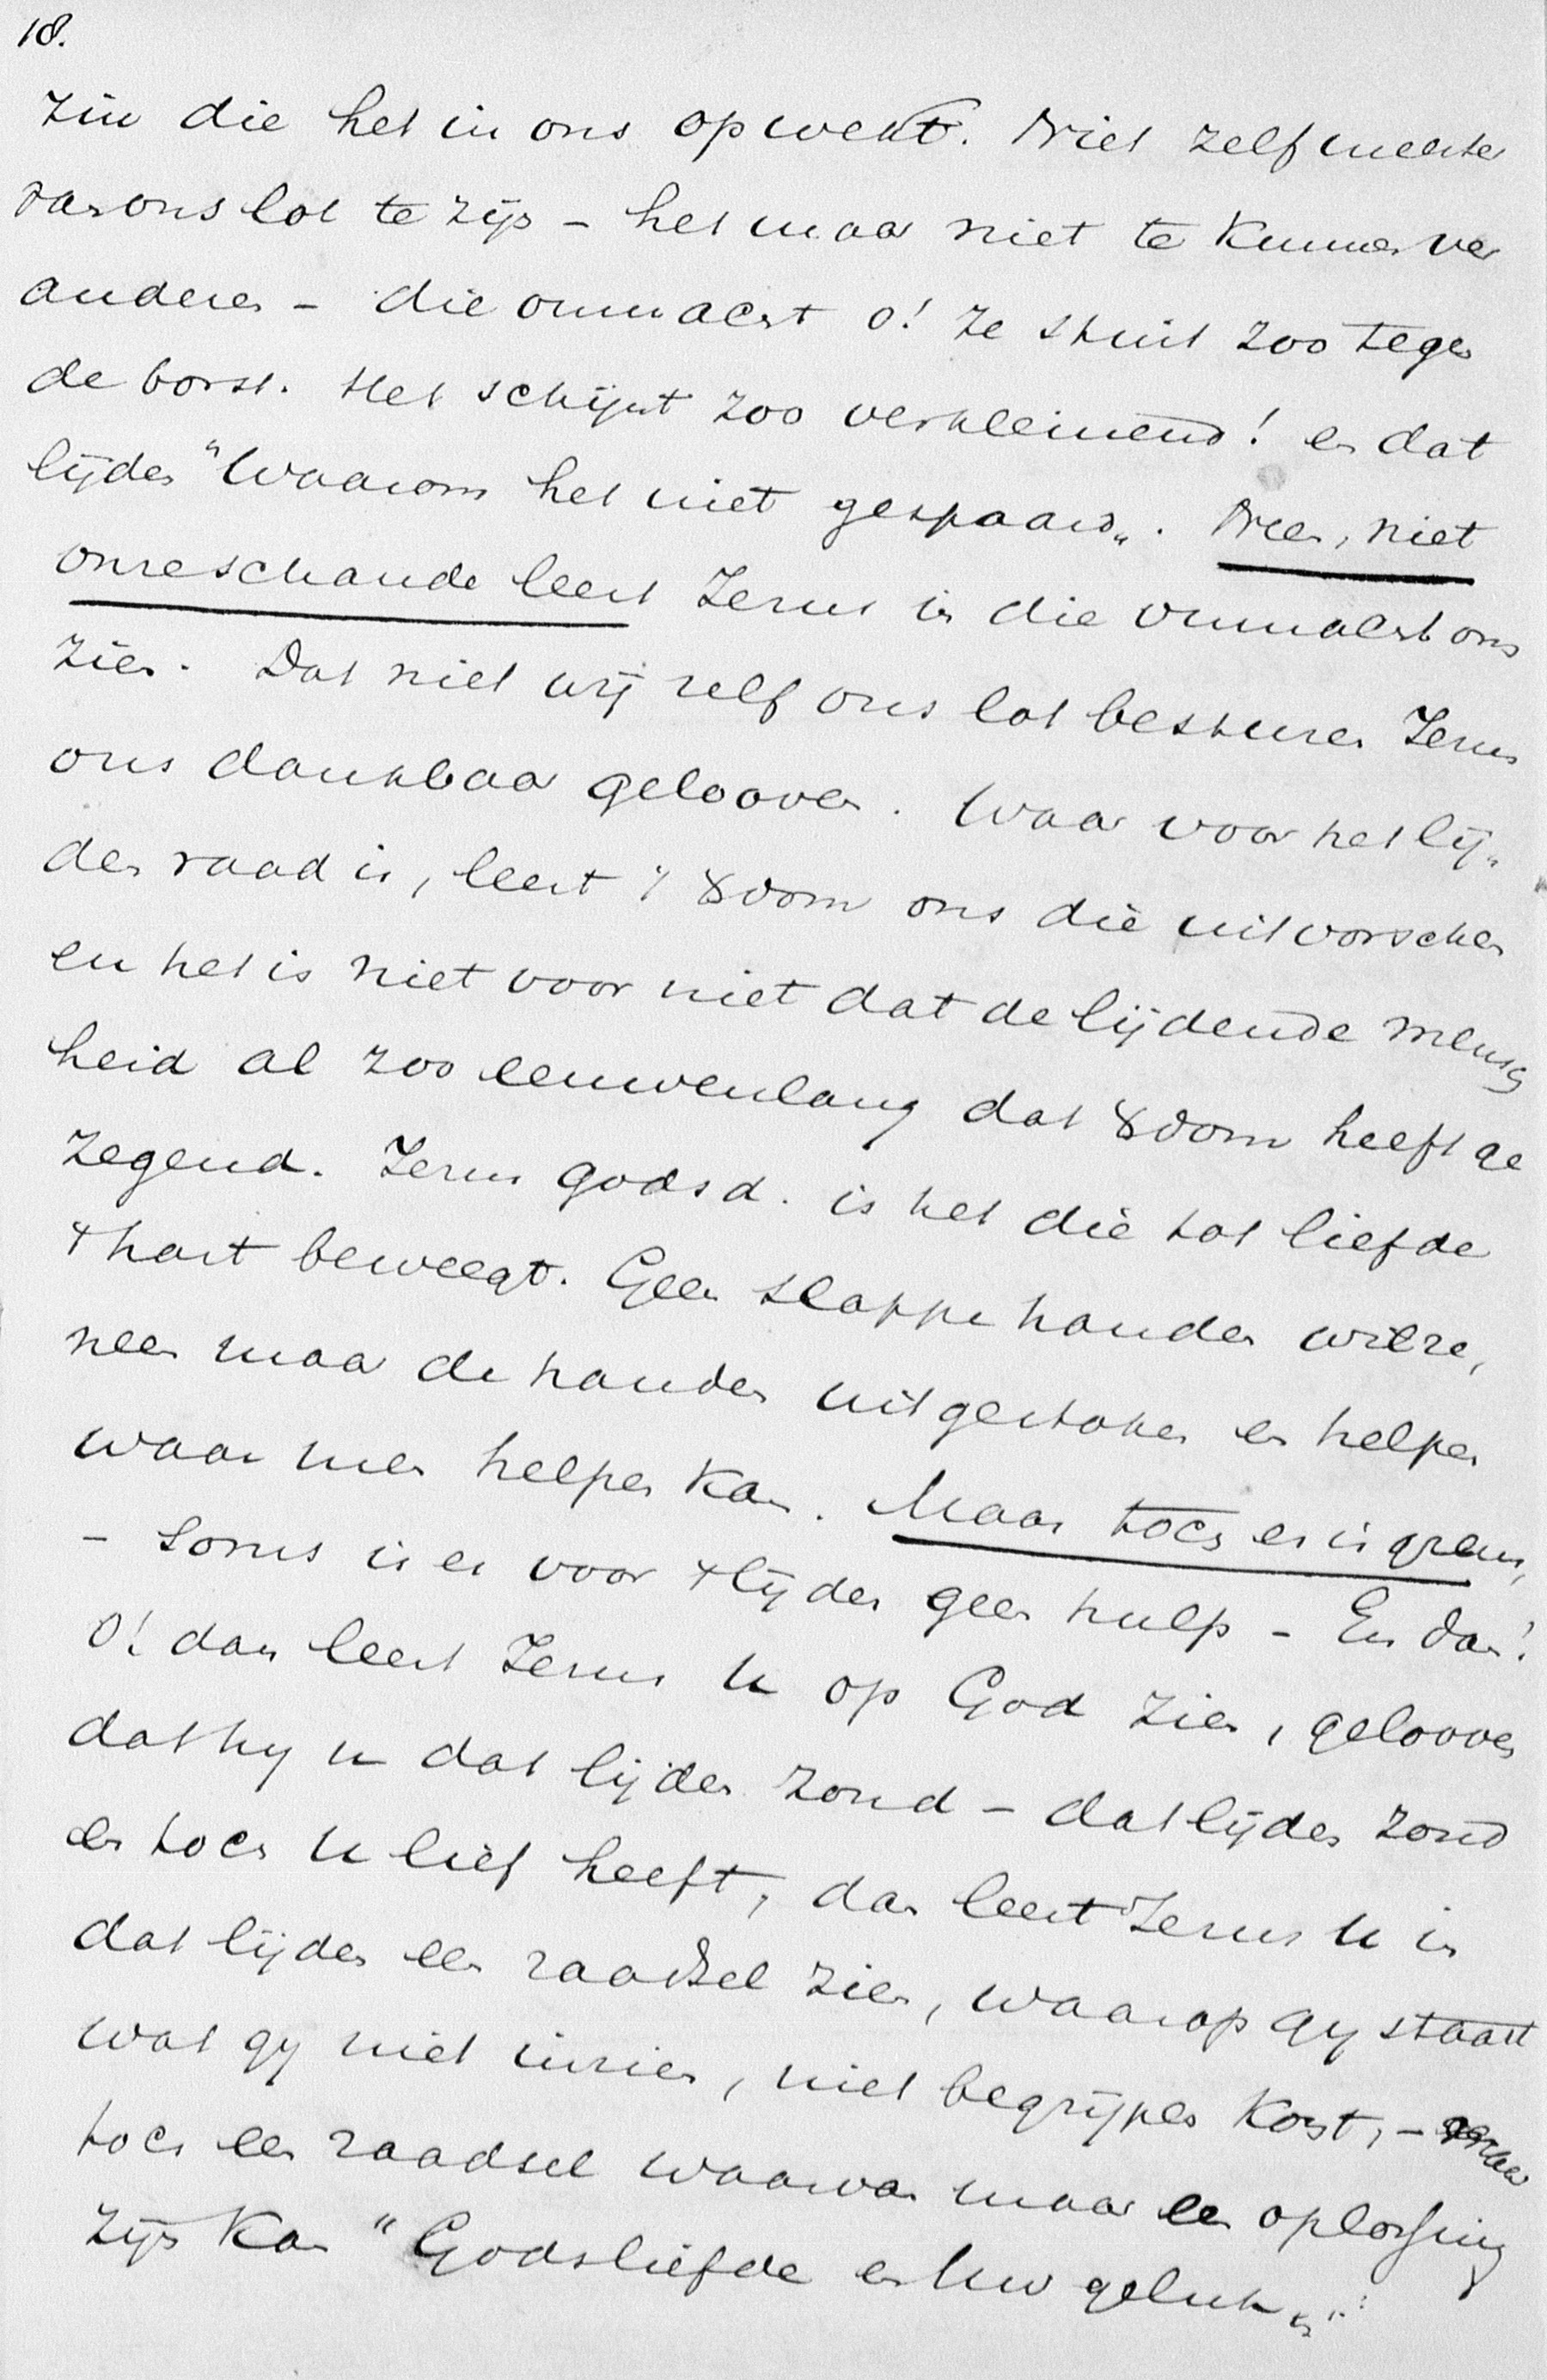 18.
zin die het in ons opwekt. Niet zelf meester
van ons lot te zijn – het maar niet te kunnen ver
anderen – die onmacht o! ze stuit zoo tegen
de borst. Het schijnt zoo verkleinend! en dat
lijden "Waarom het niet gespaard„. Neen, niet
onze schande leert Jezus in die onmacht ons
zien. Dat niet wij zelf ons lot besturen Jezus
ons dankbaar gelooven. Waar voor het lij„
den raad is, leert 't Xdom ons die uitvorschen
en het is niet voor niet dat de lijdende mensch
heid al zoo eeuwenlang dat Xdom heeft ge
zegend. Jezus godsd. is het die tot liefde
't hart beweegt. Geen slappe handen wil ze,
neen maar de handen uitgestoken en helpen
waar men helpen kan. Maar toch er is grens,
– Soms is er voor 't lijden geen hulp – En dan!
O! dan leert Jezus U op God zien, gelooven
dat hy u dat lijden zond – dat lijden zond
en toch U lief heeft, dan leert Jezus U in
dat lijden een raadsel zien, waarop gy staart
wat gy niet inzien, niet begrijpen kost, – maar
toch een raadsel waarvan maar een oplossing
zijn kan "Godsliefde en Uw geluk„